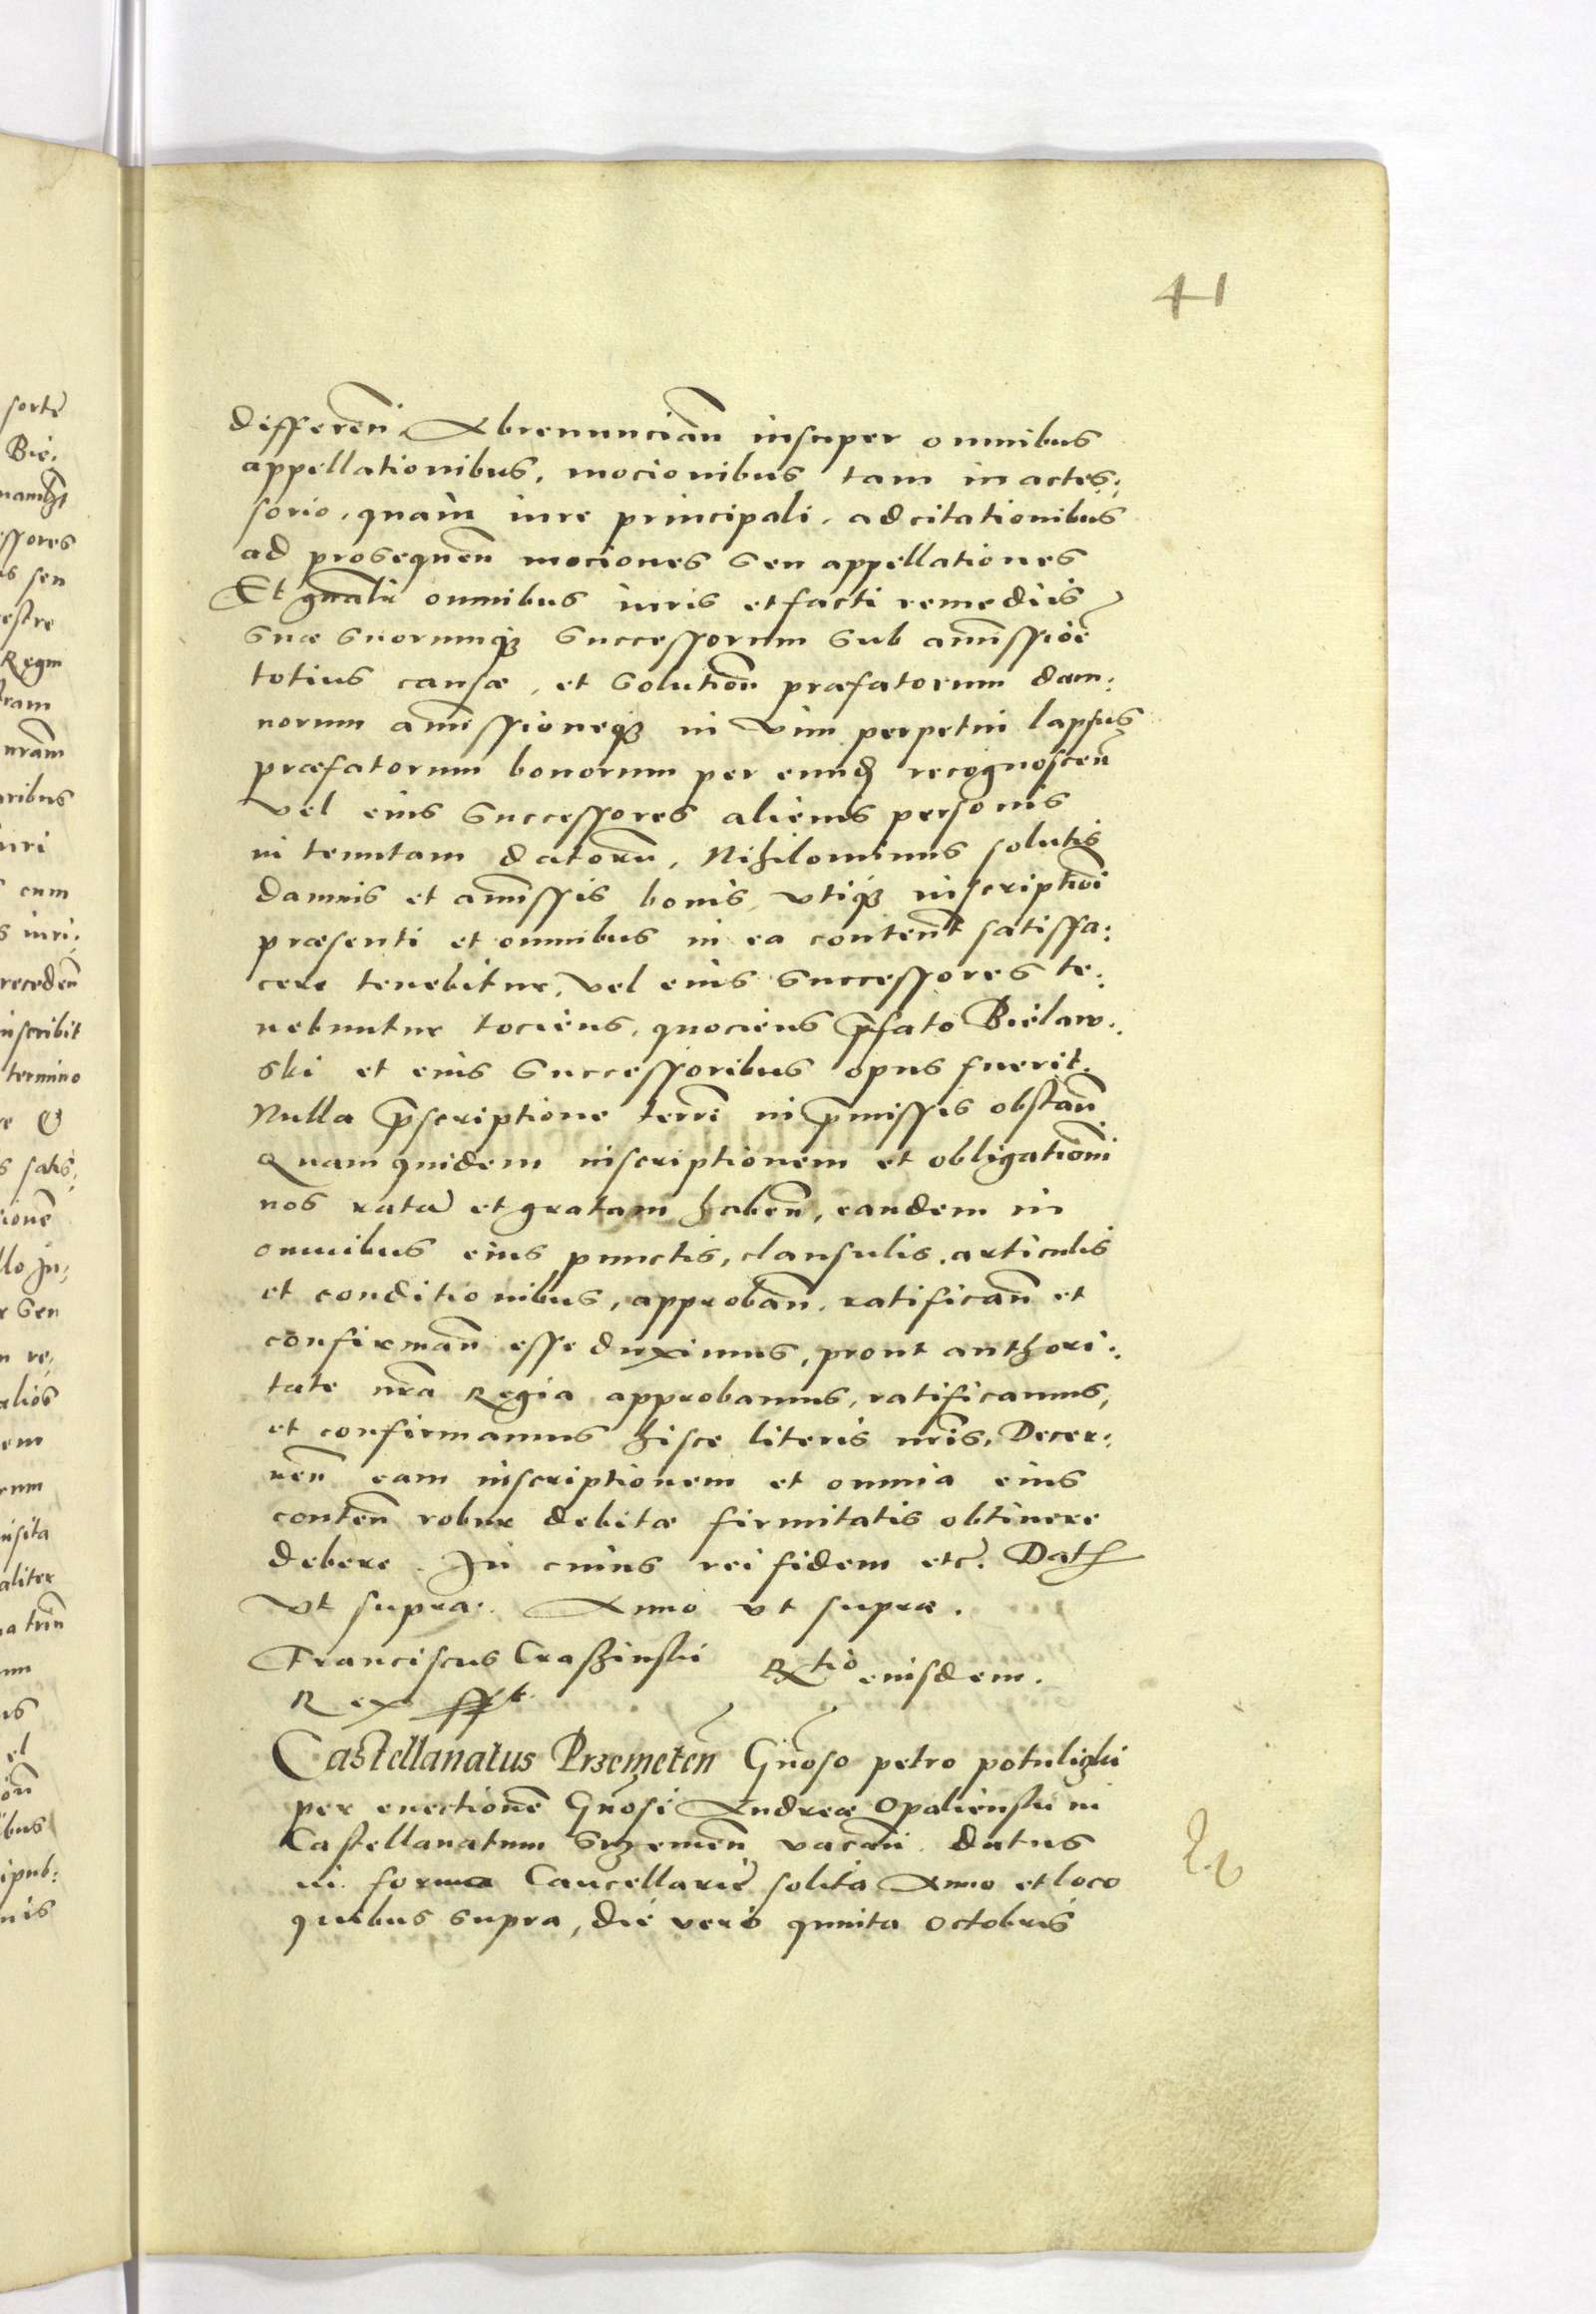 41
differen̄. Abrenuncian̄ insuper omnibus
appellationibus, mocionibus tam in acces:
sorio, quam iure principali, adcitationibus
ad prosequen̄ mociones seu appellationes
Et gn̄alr̄ omnibus iuris et facti remediis
suæ suorumq3 successorum sub amissioē
totius causæ, et solution̄ præfatorum dam:
norum amissioneq3 in vim perpetui lapsus
præfatorum bonorum per eund recognoscen̄
vel eius successores alienis personis
in tenutam datorū, Nihilominus solutis
damnis et amissis bonis, utiq3 inscriptioni
præsenti et omnibus in ea content̄ satisfa:
cere tenebitur, vel eius successores te:
nebuntur tociens, quociens p̄fato Bielaw:
ski et eius successoribus opus fuerit.
Nulla p̄scriptione terrē in p̄missis obstan̄
Quam quidem inscriptionem et obligation̄i
nos ratā et gratam haben̄, eandem in
omnibus eius punctis, clausulis, articulis
et conditionibus, approban̄, ratifican̄ et
confirman̄ esse duximus, prout authori:
tate nrā Regia approbamus, ratificamus,
et confirmamus hisce literis nris̄, Decer:
nen̄ eam inscriptionem et omnia eius
conten̄ robur debitæ firmitatis obtinere
debere. In cuius rei fidem etc̄. Dat
ut supra. Anno ut supra.
Franciscus Crasinski Rtio eiusdem.
Rex sst
Castellanatus Przemeten̄ Gn̄oso petro potulizki
per euectionē Gn̄osi Andreæ Opalienski in
Castellanatum Srzemen̄ vacan̄ datus
in forma Cancellariē solita Anno et loco
quibus supra, die vero quinta octobris